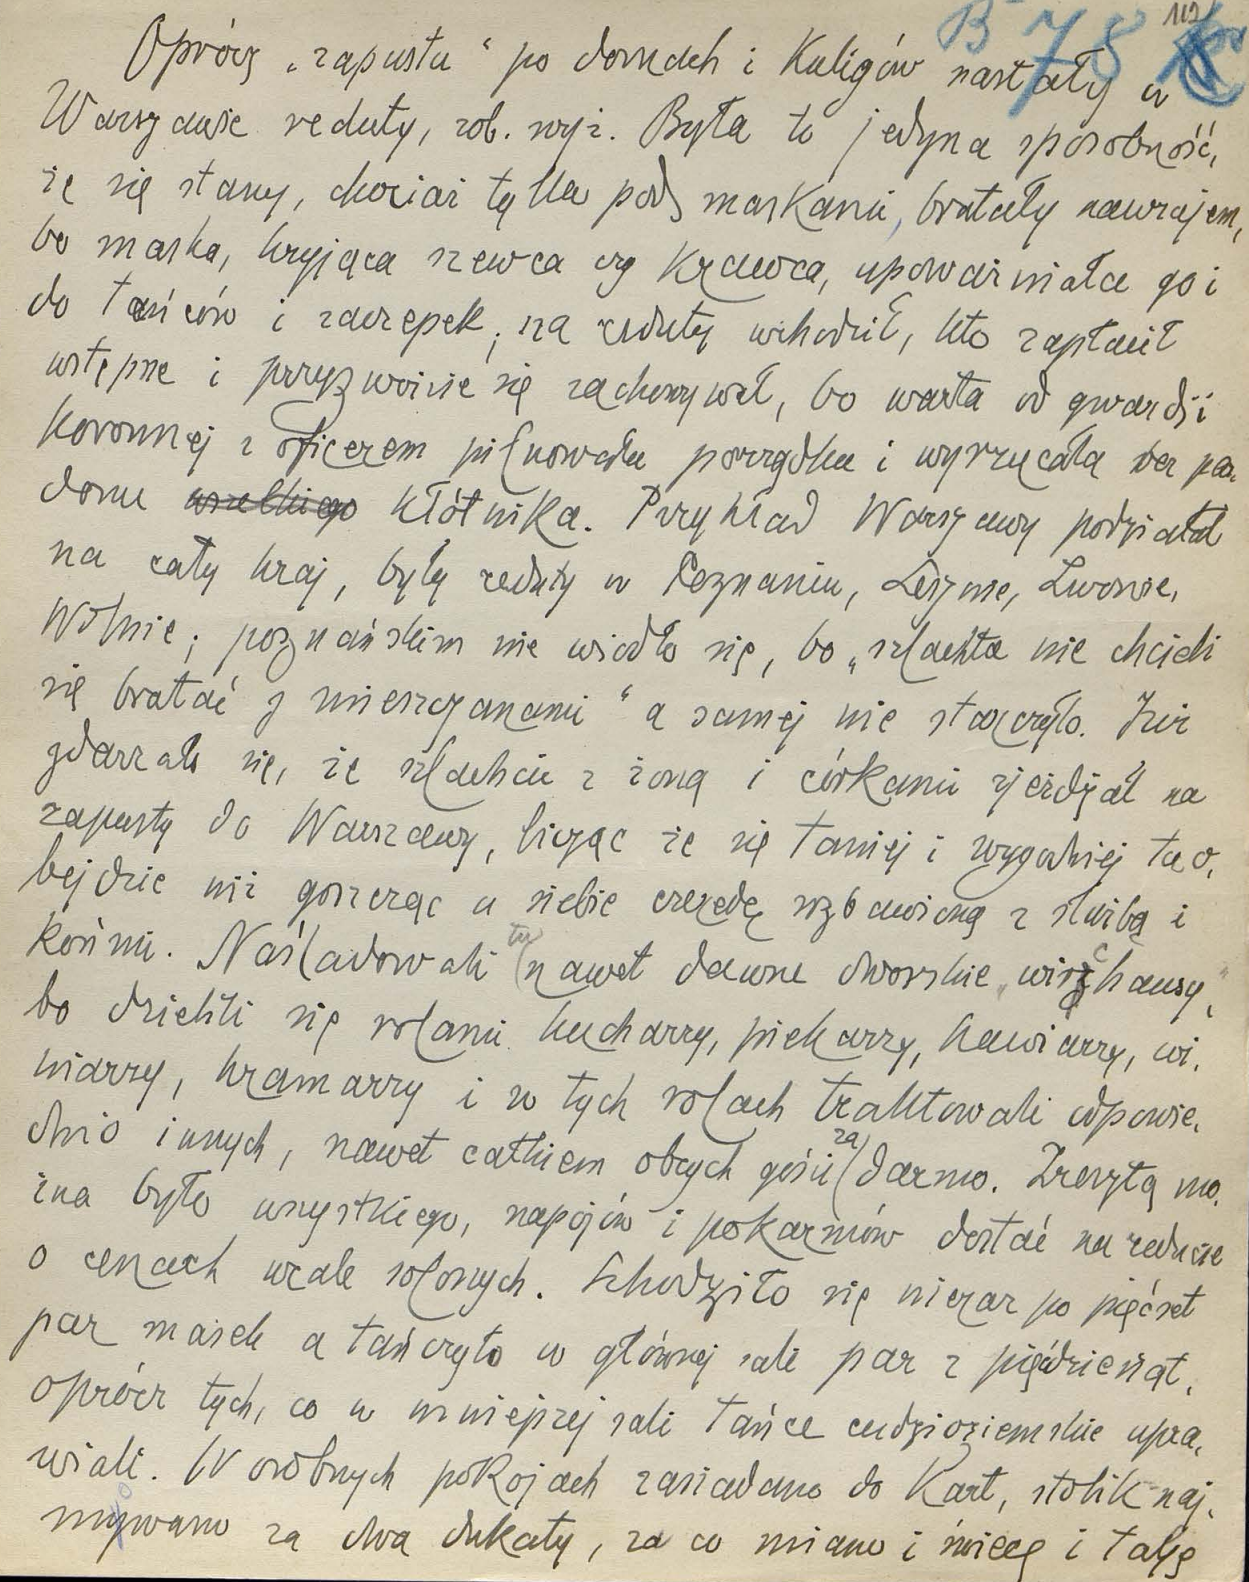 B 78
112
Oprócz „zapusta" po domach i Kuligów nastały w
Warszawie reduty, zob. wyż. Była to jedyna sposobność,
że się stany, chociaż tylko pod maskami, bratały nawzajem,
bo maska, kryjąca szewca czy Krawca, upoważniała go i
do tańców i zaczepek; na reduty wchodził, kto zapłacił
wstępne i przyzwoicie się zachowywał, bo warta od gwardji
Koronnej z oficerem pilnowała porządku i wyrzucała bez par-
donu wszelkiego Kłótnika. Przykład Warszawy podziałał
na cały kraj, były reduty w Poznaniu, Lesznie, Lwowie,
Wilnie; poznańskim nie wiodło się, bo „szlachta nie chcieli
się bratać z mieszczanami" a samej nie starczyło. Już
zdarzało się, że szlachcic z żoną i córkami zjeżdżał na
zapusty do Warszawy, licząc że się taniej i wygodniej tu o-
bejdzie niż goszcząc u siebie czeredę rozbawioną z służbą i
końmi. Naśladowali tu nawet dawne dworskie „wirchausy",
bo dzielili się rolami kucharzy, piekarzy, kawiarzy, wi-
niarzy, kramarzy i w tych rolach traktowali odpowie-
dnio innych, nawet całkiem obcych gości za darmo. Zresztą mo-
żna było wszystkiego, napojów i pokarmów dostać na reducie
o cenach wcale słonych. Schodziło się nieraz po pięćset
par masek a tańczyło w głównej sali par z pięćdziesiąt,
oprócz tych, co w mniejszej sali tańce cudzoziemskie upra-
wiali. W osobnych pokojach zasiadano do Kart, stolik naj-
mowano za dwa dukaty, za co miano i świecę i talję